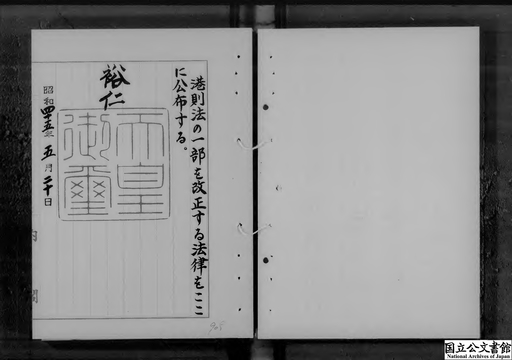 港則法の一部を改正する法律をここ
に公布する。
裕仁
天皇御璽
昭和四十五年五月二十日
内閣
国立公文書館
National Archives of Japan